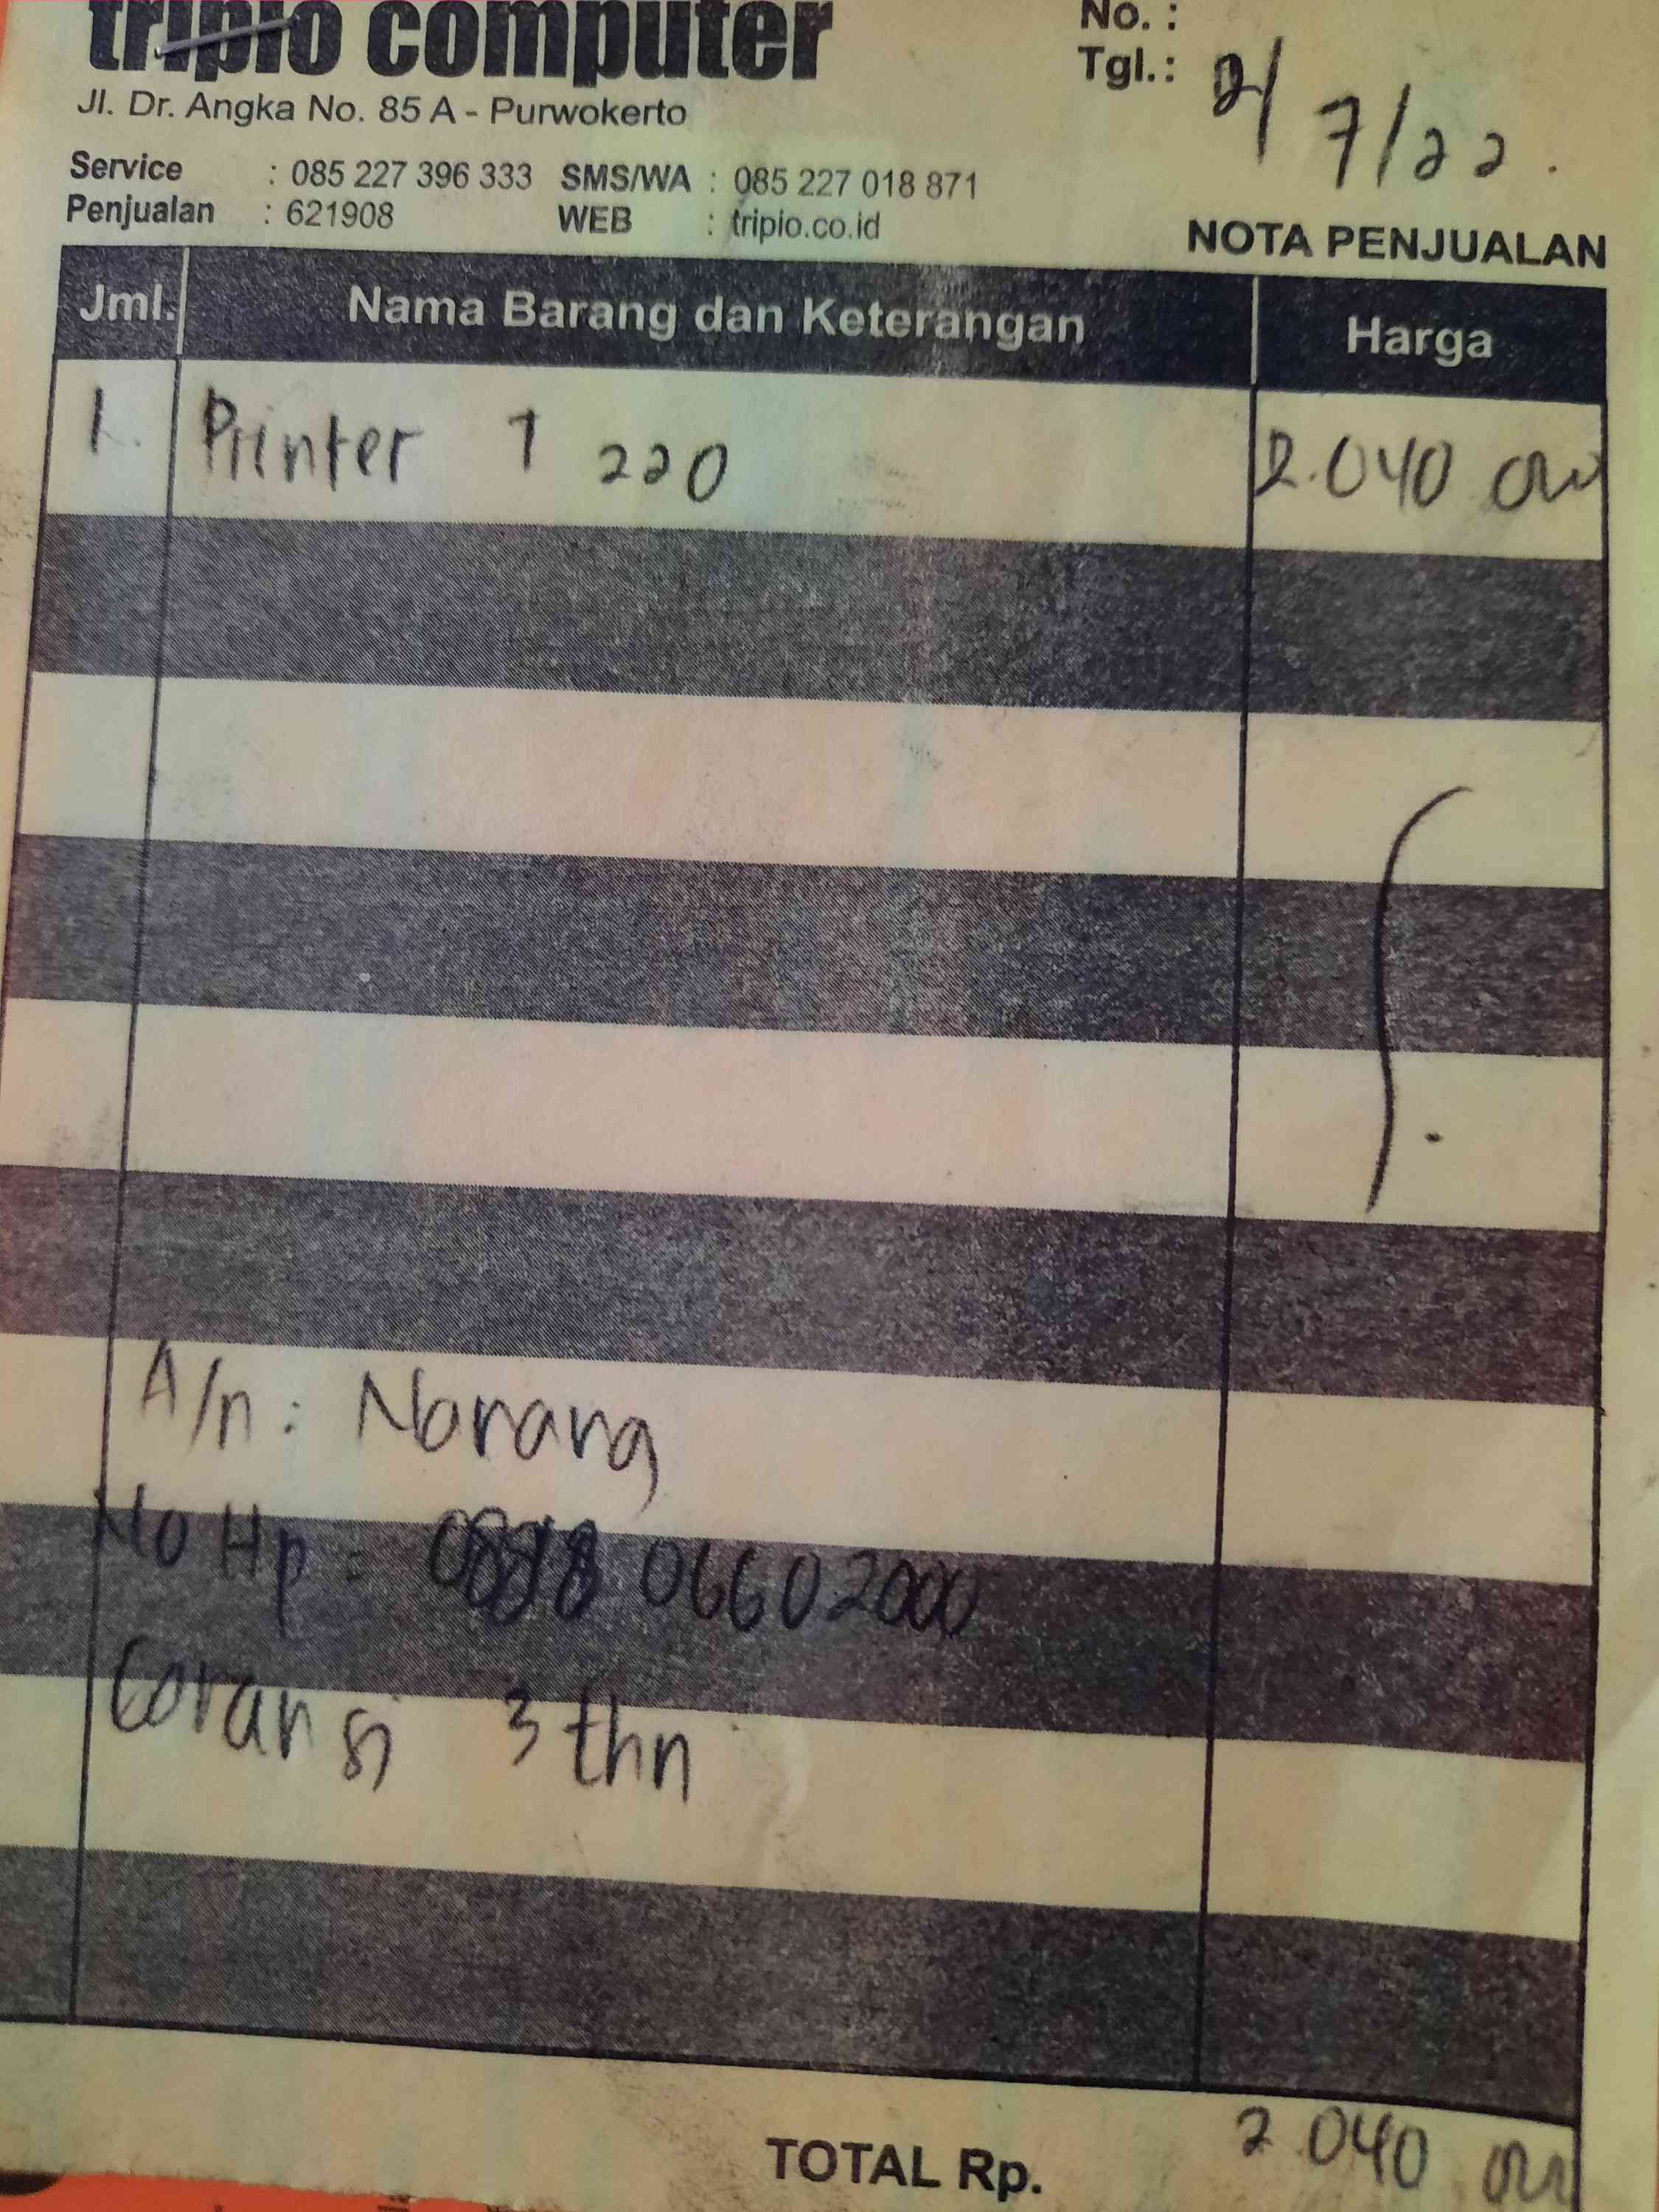 tripio computer
No. :
Tgl. : 2/7/22.
Jl. Dr. Angka No. 85 A - Purwokerto
Service : 085 227 396 333 SMS/WA : 085 227 018 871
Penjualan : 621908 WEB : tripio.co.id
NOTA PENJUALAN
Jml. Nama Barang dan Keterangan Harga
1. Printer T 220 2.040 000
A/n : Nonang
No Hp = 06602000
Garansi 3 thn
TOTAL Rp. 2.040 000